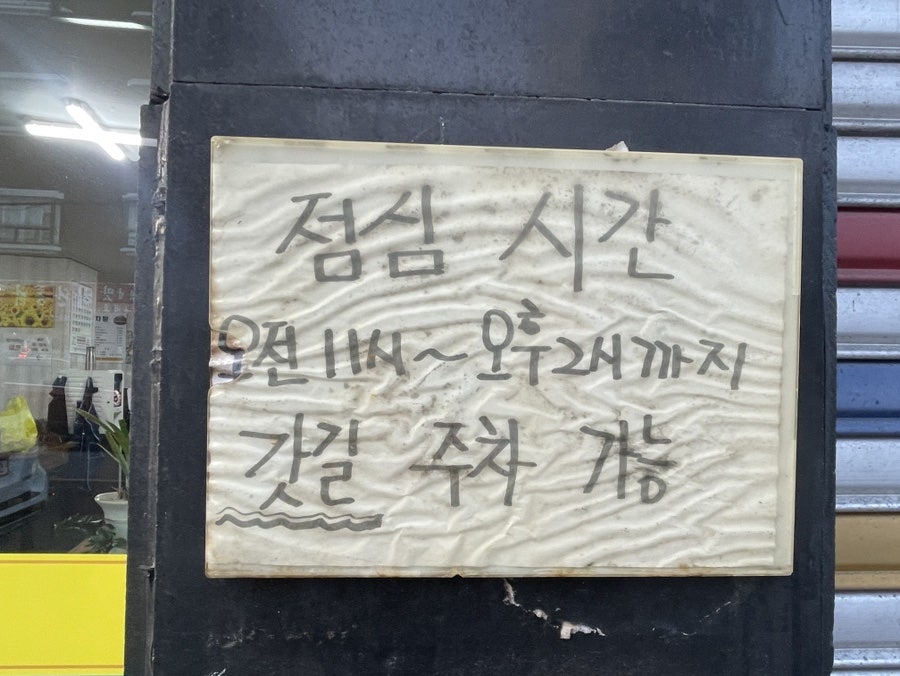 점심 시간
오전 11시~오후2시까지
갓길 주차 가능